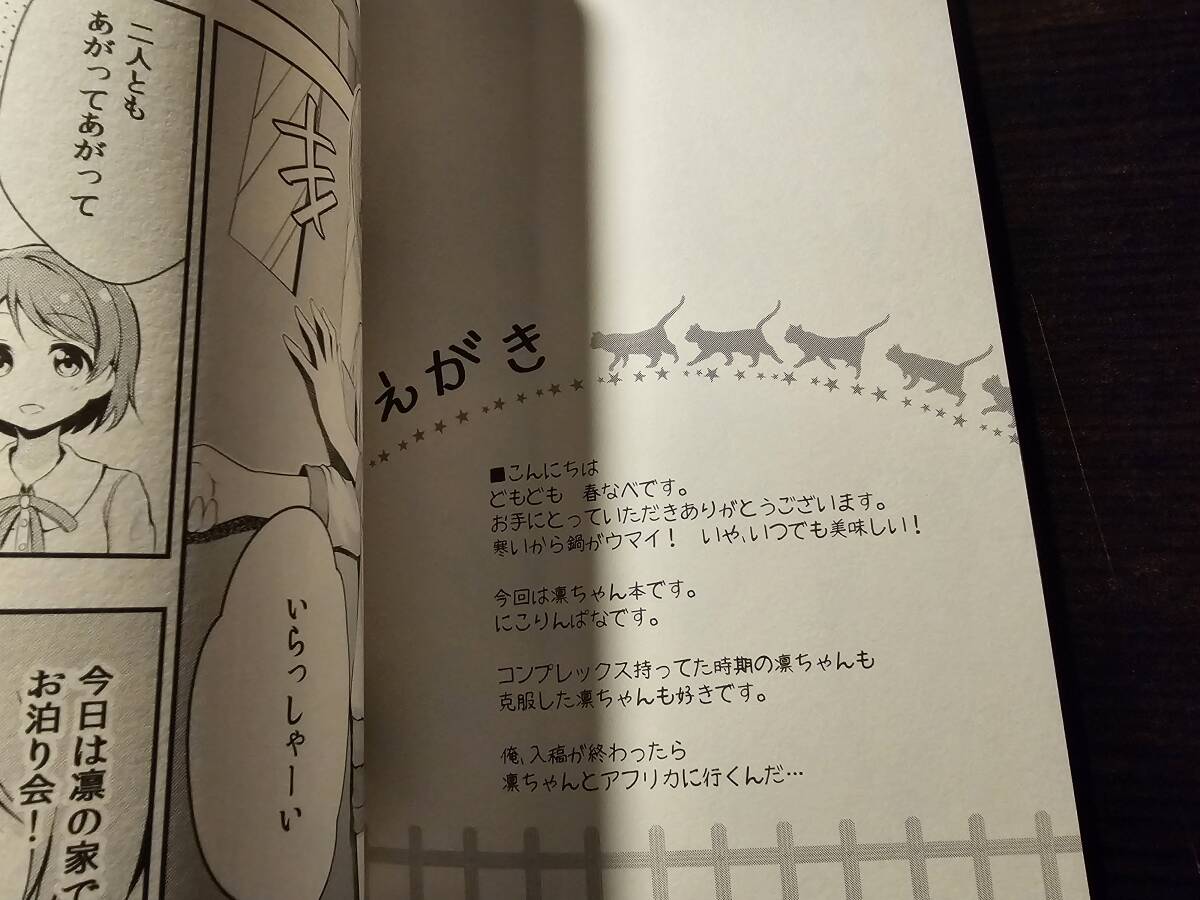 二人とも
あがってあがって
いらっしゃーい
今日は凛の家で
お泊り会！
えがき
■こんにちは
どもども　春なべです。
お手にとっていただきありがとうございます。
寒いから鍋がウマイ！　いや、いつでも美味しい！
今回は凛ちゃん本です。
にこりんぱなです。
コンプレックス持ってた時期の凛ちゃんも
克服した凛ちゃんも好きです。
俺、入稿が終わったら
凛ちゃんとアフリカに行くんだ…